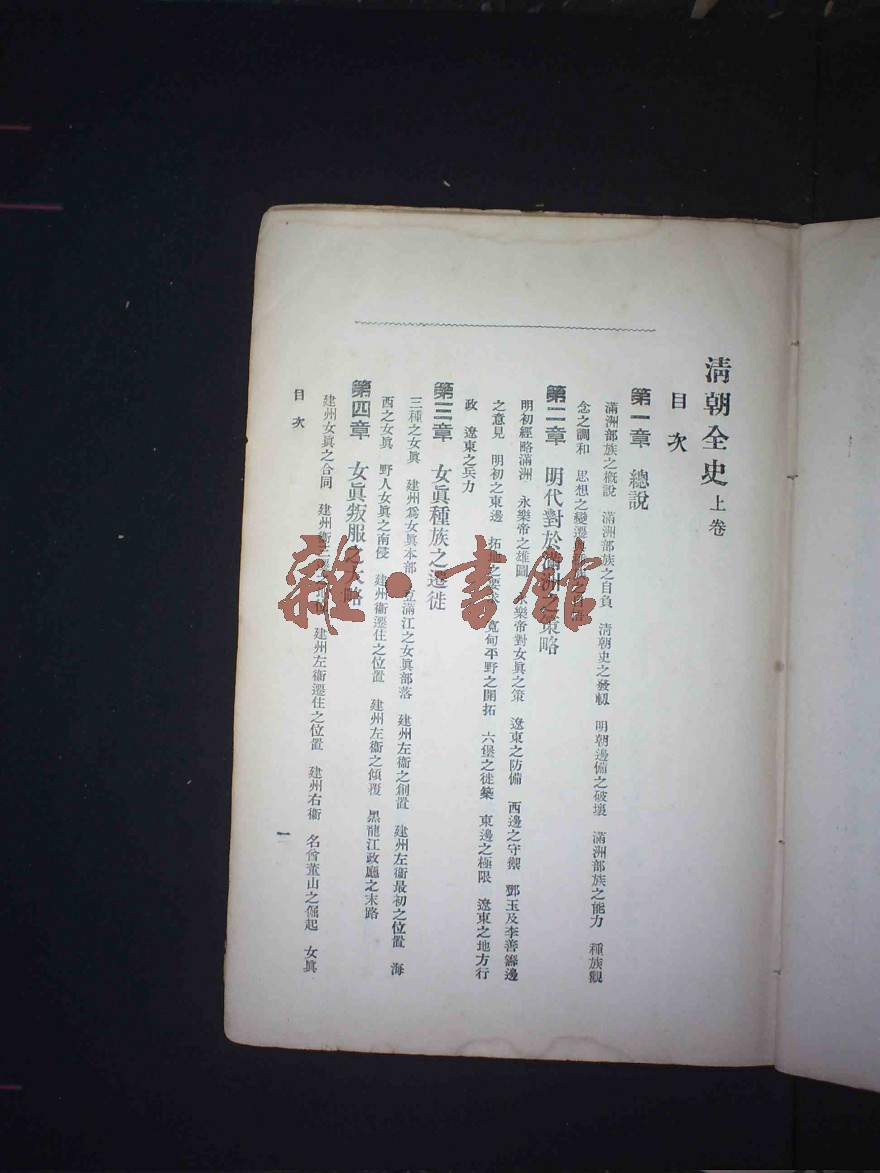 清朝全史 上卷
目次
第一章 總說
滿洲部族之概說 滿洲部族之自負 清朝史之發軔 明朝邊備之破壞 滿洲部族之能力 種族觀
念之調和 思想之變遷
第二章 明代對於滿洲之策略
明初經略滿洲 永樂帝之雄圖 永樂帝對女眞之策 遼東之防備 西邊之守禦 鄧玉及李善籌邊
之意見 明初之東邊 拓地之 寬甸平野之開拓 六堡之徙築 東邊之極限 遼東之地方行
政 遼東之兵力
第三章 女眞種族之遷徙
三種之女眞 建州爲女眞本部 滿江之女眞部落 建州左衞之創置 建州左衞最初之位置 海
西之女眞 野人女眞之南侵 建州衞遷住之位置 建州左衞之傾覆 黑龍江政廳之末路
第四章 女眞叛服之大略
建州女眞之合同 建州衞 建州左衞遷住之位置 建州右衞 名酋董山之倔起 女眞
目次
一
雜·書館